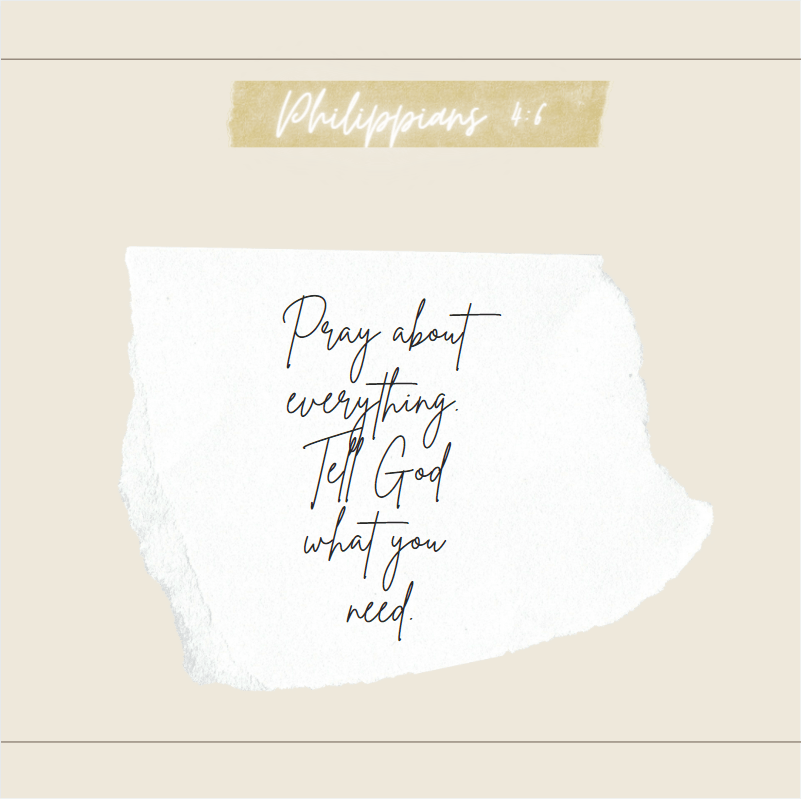 Philippians 4:6
Pray about
everything.
Tell God
what you
need.